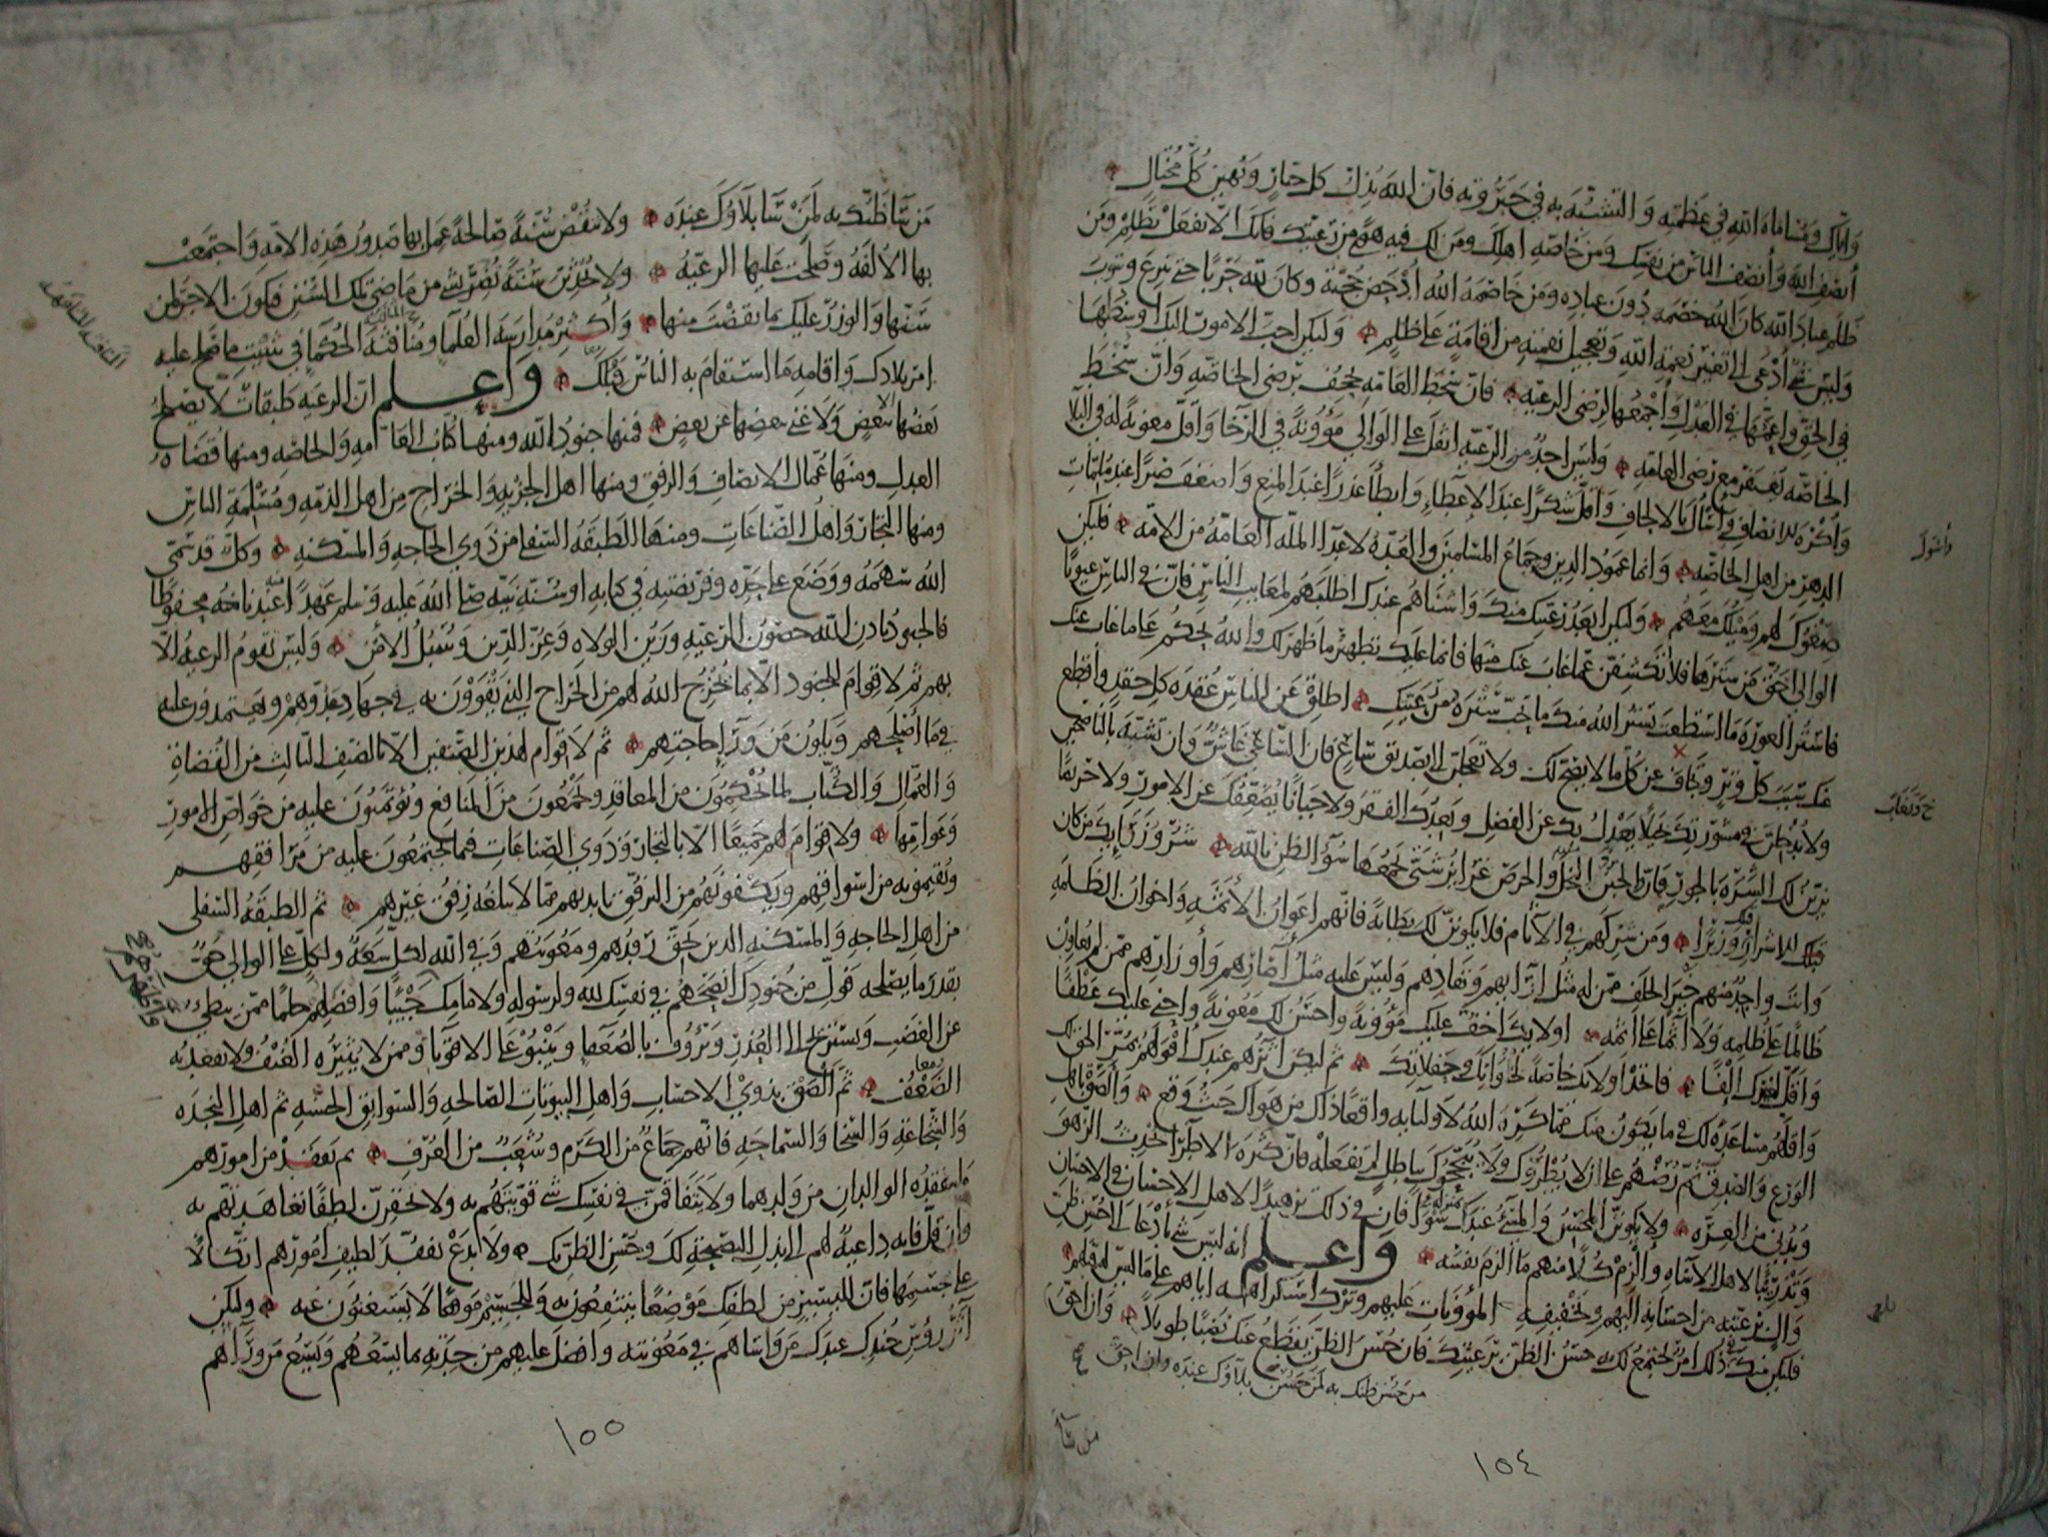 وَايّاك وَمُسَاماة الله في عَظَمتِه وَ التشبُّه به في جَبَرُوته فانّ الله يُذِلّ كل جبّارٍ وَيُهين كلّ مُختالٍ
أنصفِ الله وَأنصف الناسَ من نفسِك ومن خاصّةِ اهلك ومَن لك فيه هوًى من رعيّتك فانّك الّا تفعَل تظلِم ومَن
ظَلم عبادَ الله كان الله خصْمَه دُون عبادِه ومَن خاصَمه الله ادْحَضَ حُجّته وكان لله حَرْبًا حتى ينزع ويتوب
وَليسَ شئ أدْعى الى تغيير نعمةِ الله وَتعجيل نقمتِه من اقامةٍ على ظلمٍ وَليكن احبّ الامور اليك اوسَطُها
في الحقّ وَاعمّها في العَدْل وَأجمعُها لِرضَى الرعيّه فانّ سُخْط العامّه يُجحِف برضى الخاصّه وَانّ سُخْط
الخاصّه يُغتفر مع رضى العامّه وَليسَ احدٌ من الرّعيّه اثقلَ على الوَالي مَؤُونةً في الرّخا وَاقلّ معونةً له في البلآ
وَأكرَه للانصافِ وَأسْألَ بالالحافِ وَاقلّ شكرًا عند الإعطاءِ وَابطأ عُذرًا عندَ المنع وَاضعفَ صَبرًا عند مُلِمّات
الدهر من اهل الخاصّه وَانما عمُود الدين وجِماع المسلمين وَالعُدّة للاعدآ العامّةُ من الامّه فليكن
صِغْوُك لهم ومَيْلك معَهم وَليكن ابعَدُ رعيّتك منك وَاشناهم عندك اطلبَهم لمعَايب الناسِ فانّ في الناسِ عيوبًا
الوالي احَقّ مَن سَترَها فلا تكشِفنّ عمّا غابَ عنك منها فانما عليك تطهيرُ ما ظهَر لك والله يحكم على ما غاب عنك
فاسْتُر العَورَة ما استطعت يستُر الله منك ما تحبّ سَتره من رعيّتك اطلِقْ عن الناسِ عُقدة كل حِقد وَاقطع
عنك سَببَ كلّ وِترٍ وَتغابَ عن كل ما لا يضح لك ولا تعجلنّ الى تصديق سَاعٍ فان السّاعيَ غاشّ وَان تشبّه بالناصحين
ولا تُدخلنّ في مشورتك بخيلًا يعْدِل بك عن الفضل ويعِدك الفقرَ ولا جبانًا يُضعِفك عن الامور ولا حريصًا
يزيّن لك الشّرَه بالجور فانّ البخل والجبن والحرصَ غرَائز شتّى يجمعُها سُوء الظن بالله شرّ وُزرَائك مَن كان
قبلك للاشرار وَزيرًا وَمَن شرِكهم في الآثام فلا يكوننّ لك بطانةً فانّهم اعوان الأثمَةِ وَاخوانُ الظّلَمةِ
وَانت وَاجدٌ منهم خيرَ الخلَف ممّن له مثل ارائهم وَنفاذِهم وَليسَ عليه مثلُ آصَارِهم وَأوزارِهم ممّن لم يُعاوِن
ظالمًا على ظُلمه ولا آثمًا على اثمه اولائك اخفّ عليك مَؤُونةً وَاحسَنُ لك مَعُونةً وَاحنى عليك عَطفًا
وَاقلّ لغيرك الْفًا فاتخذ اولائك خاصّةً لخَلَواتِك وحَفَلاتِك ثم ليكن آثرهم عندك أقوَلهم بمُرّ الحق لك
وَاقلّهم مساعدةً لك في ما يكون منك ممّا كرِه الله لاوليَائه واقعًا ذاك من هواك حيثُ وَقع وَالصَقْ باهل
الوَرَع وَالصّدق ثم رُضْهم على ان لا يُطروك ولا يُبجّحوك بباطلٍ لم تفعَلْه فانّ كثرة الاطرآ تُحدِث الزَّهوَ
وَتُدني من العِزّه ولا يكوننّ المحسِنُ وَالمسئُ عندك بمنزلة سَوآء فان في ذلك تزهيدًا لاهل الاحسان في الاحسان
وَتدْرِيبًا لاهل الاسَاءة وَألزِم كلًّا منهم ما ألزمَ نفسَه وَاعلم انه ليسَ شئ بأدْعا الى حُسْن ظنّ
وَالٍ برعيّته من احسَانه اليهم وتخفيفه المؤونات عليهم وتركِ استكراهِه اياهم على ما ليس له قِبَلهم
فليكن منك في ذلك امرٌ يجتمعُ لك به حسنُ الظنّ برعيّتك فان حُسْنَ الظنّ يقطعُ عنك نَصَبًا طويلًا وَان احقّ
من حَسُن ظنّك به لمَن حَسُن بلآؤك عنده وان احقّ
وأسْول
خ وتغابَ
١٥٤
مَن سَآ ظنّك به لَمَنْ سَآ بلآوُك عندَه ولا تنقُضْ سُنّةً صَالحةً عَمِل بها صدورُ هذه الامّه وَاجتمعَتْ
بها الأُلفةُ وَصلَحت عليها الرعيّةُ ولا تُحدِثنّ سُنّةً تضُرّ بشئ من مَاضى تلك السُّنَن فيكونَ الاجرُ لمن
سَنّها وَالوِزرُ عليك بما نقضْتَ منها وَأكثِرْ مُدارسَة العُلمآ ومُنافثة الحُكمآ في تثبيتِ ما صلح عليه
امر بلادك وَاقامةِ ما استقامَ به الناسُ قبلك وَاعلم انّ الرعيّه طبقاتٌ لا يصلحُ
بعضُها الا ببعضٍ وَلا غنى ببعضها عن بعضٍ فمنها جنودُ الله ومنها كُتّابُ العَامه وَالخاصّه ومنها قُضَاةُ
العدلِ ومنها عُمّال الانصافِ وَالرفق ومنها اهل الجزيهِ وَالخراج من اهل الذمّه ومُسْلِمةِ الناسِ
ومنها التجّار وَأهلُ الصّناعَاتِ ومنها الطبقةُ السّفلى من ذَوي الحاجه وَالمسكنه وَكلّ قد سَمّى
الله سَهمَهُ ووَضَعَ على حدّه وفريضتِه في كتابه او سُنّة نبيّه صلى الله عليه وَسلم عهدًا عندنا محفوظًا
فالجنود باذن الله حصُونُ الرعيّهِ وزَين الولاه وَعِزّ الدّين وَسُبُلُ الامْن وَليسَ تقوم الرعيةُ الّا
بهم ثم لا قِوامَ للجنود الّا بما يُخرِج الله لهم من الخراج الذي يقْوَوْن به في جهَاد عدوّهم ويعتمدون عليه
في ما اصلحهم ويكون من ورَآ حاجتهم ثم لا قِوام لهذين الصّنفين الّا بالصّنف الثالث من القُضاة
وَالعُمّال وَالكُتّاب لما يُحكِمون من المعاقد ويجمَعونَ من المنافع ويُؤتمنون عليه من خواصّ الامور
وَعوامّها ولا قِوامَ لهم جميعًا الّا بالتجّار وَذوي الصّناعَات فيما يجتمعُون عليه من مَرَافقهم
ويُقيمونه من اسواقهم ويكفُونهم من الترفّق بايديهم ممّا لا يبلغه رِفقُ غيرهم ثم الطبقةُ السّفلى
من اهل الحاجه وَالمسكنه الذين يحقّ رِفدُهم ومَعُونتهم وفي الله لكلّ سَعةٌ ولكلّ على الوالي حَقّ
بقدر ما يصلحه فولِّ من جُنودك انصَحهم في نفسِك لله ولرسوله ولامامك جَيْبًا وَافضلهم حلمًا ممّن يبطئ
عن الغضبِ وَيستريح الى العُذر وَيَرؤُف بالضعَفآ ويَنْبو على الاقويآ وممّن لا يُثيرُه العُنْف ولا يقعد به
الضّعْفُ ثم الصَقْ بذوي الاحسَاب وَاهل البيوتات الصّالحه وَالسّوابق الحسَنه ثم اهل النجدَه
وَالشّجاعة وَالسّخآ وَالسّماحه فانّهم جماعٌ من الكرَم وشُعَبٌ من العُرف ثم تفقّدْ من امورهم
ما يتفقّده الوالدان من وَلدهما ولا يتفاقمنّ في نفسك شئ قوّيتَهم به ولا تحقِرنّ لطفًا تعَاهدتَهم به
وان قلّ فانه داعيةٌ لهم الى بذل النصيحة لك وحُسْن الظن بك ولا تدَعْ تفقّد لطيف اُمورهم اتّكالًا
على جسيمها فانّ لليسير من لطفك مَوْضعًا ينتفعُون به وَللجَسيم موقعًا لا يستغنون عنه وليكن
آثرُ رؤُس جُندك عندك مَن وَاسَاهم في مَعُونته وَافضَل عليهم من جِدَته بما يسَعُهم ويسَع مَن ورَآهم
١٥٥